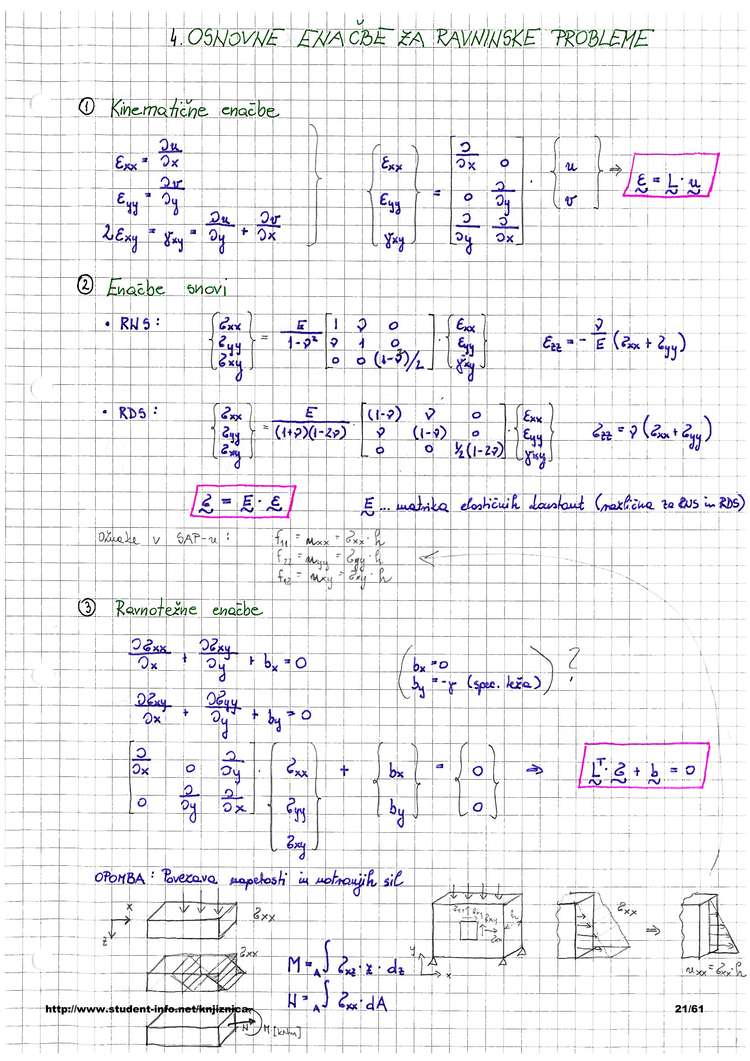 4. OSNOVNE ENAČBE ZA RAVNINSKE PROBLEME
① Kinematične enačbe
εxx = ∂u/∂x
εyy = ∂v/∂y
2εxy = γxy = ∂u/∂y + ∂v/∂x
{εxx; εyy; γxy} = [∂/∂x 0; 0 ∂/∂y; ∂/∂y ∂/∂x] · {u; v} ⇒ ε = L · u
② Enačbe snovi
• RNS: {σxx; σyy; σxy} = E/(1-ν²) [1 ν 0; ν 1 0; 0 0 (1-ν)/2] · {εxx; εyy; γxy} εzz = - ν/E (σxx + σyy)
• RDS: {σxx; σyy; σxy} = E/((1+ν)(1-2ν)) · [(1-ν) ν 0; ν (1-ν) 0; 0 0 1/2(1-2ν)] {εxx; εyy; γxy} σzz = ν (σxx + σyy)
σ = E · ε E ... matrika elastičnih konstant (različna za RNS in RDS)
Oznake v SAP-u: f11 = nxx = σxx · h
f22 = nyy = σyy · h
f12 = nxy = σxy · h
③ Ravnotežne enačbe
∂σxx/∂x + ∂σxy/∂y + bx = 0
(bx = 0
by = -γ (spec. teža)) ?
∂σxy/∂x + ∂σyy/∂y + by = 0
[∂/∂x 0 ∂/∂y; 0 ∂/∂y ∂/∂x] · {σxx; σyy; σxy} + {bx; by} = {0; 0} ⇒ Lᵀ · σ + b = 0
OPOMBA: Povezava napetosti in notranjih sil
x
z
σxx
σxx
M = A∫ σxz · z · dz
N = A∫ σxx · dA
y
x
h
σxx
⇒
nxx = σxx · h
http://www.student-info.net/knjiznica/
21/61
N M [kNm]